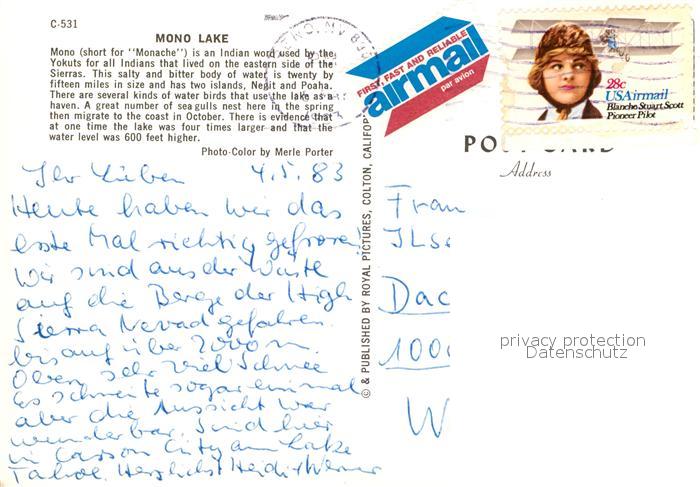 C-531
MONO LAKE
Mono (short for "Monache") is an Indian word used by the
Yokuts for all Indians that lived on the eastern side of the
Sierras. This salty and bitter body of water is twenty by
fifteen miles in size and has two islands, Negit and Poaha.
There are several kinds of water birds that use the lake as a
haven. A great number of sea gulls nest here in the spring
then migrate to the coast in October. There is evidence that
at one time the lake was four times larger and that the
water level was 600 feet higher.
Photo-Color by Merle Porter
Ihr Lieben 4.5.83
Heute haben wir das
erste Mal richtig gefroren!
Wir sind aus der Wüste
auf die Berge der High
Sierra Nevad gefahren.
bis auf über 2000 m.
Oben sehr viel Schnee
Es schneite sogar einmal
aber die Aussicht war
wunderbar. Sind hier
in Carson City am Lake
Tahoe. Herzlichst Heidi + Werner
© & PUBLISHED BY ROYAL PICTURES, COLTON, CALIFOR
FIRST, FAST AND RELIABLE
airmail
par avion
RENO, NV
28c
USAirmail
Blanche Stuart Scott
Pioneer Pilot
POST CARD
Address
Frau
Ilse
Dac
100
W
privacy protection
Datenschutz